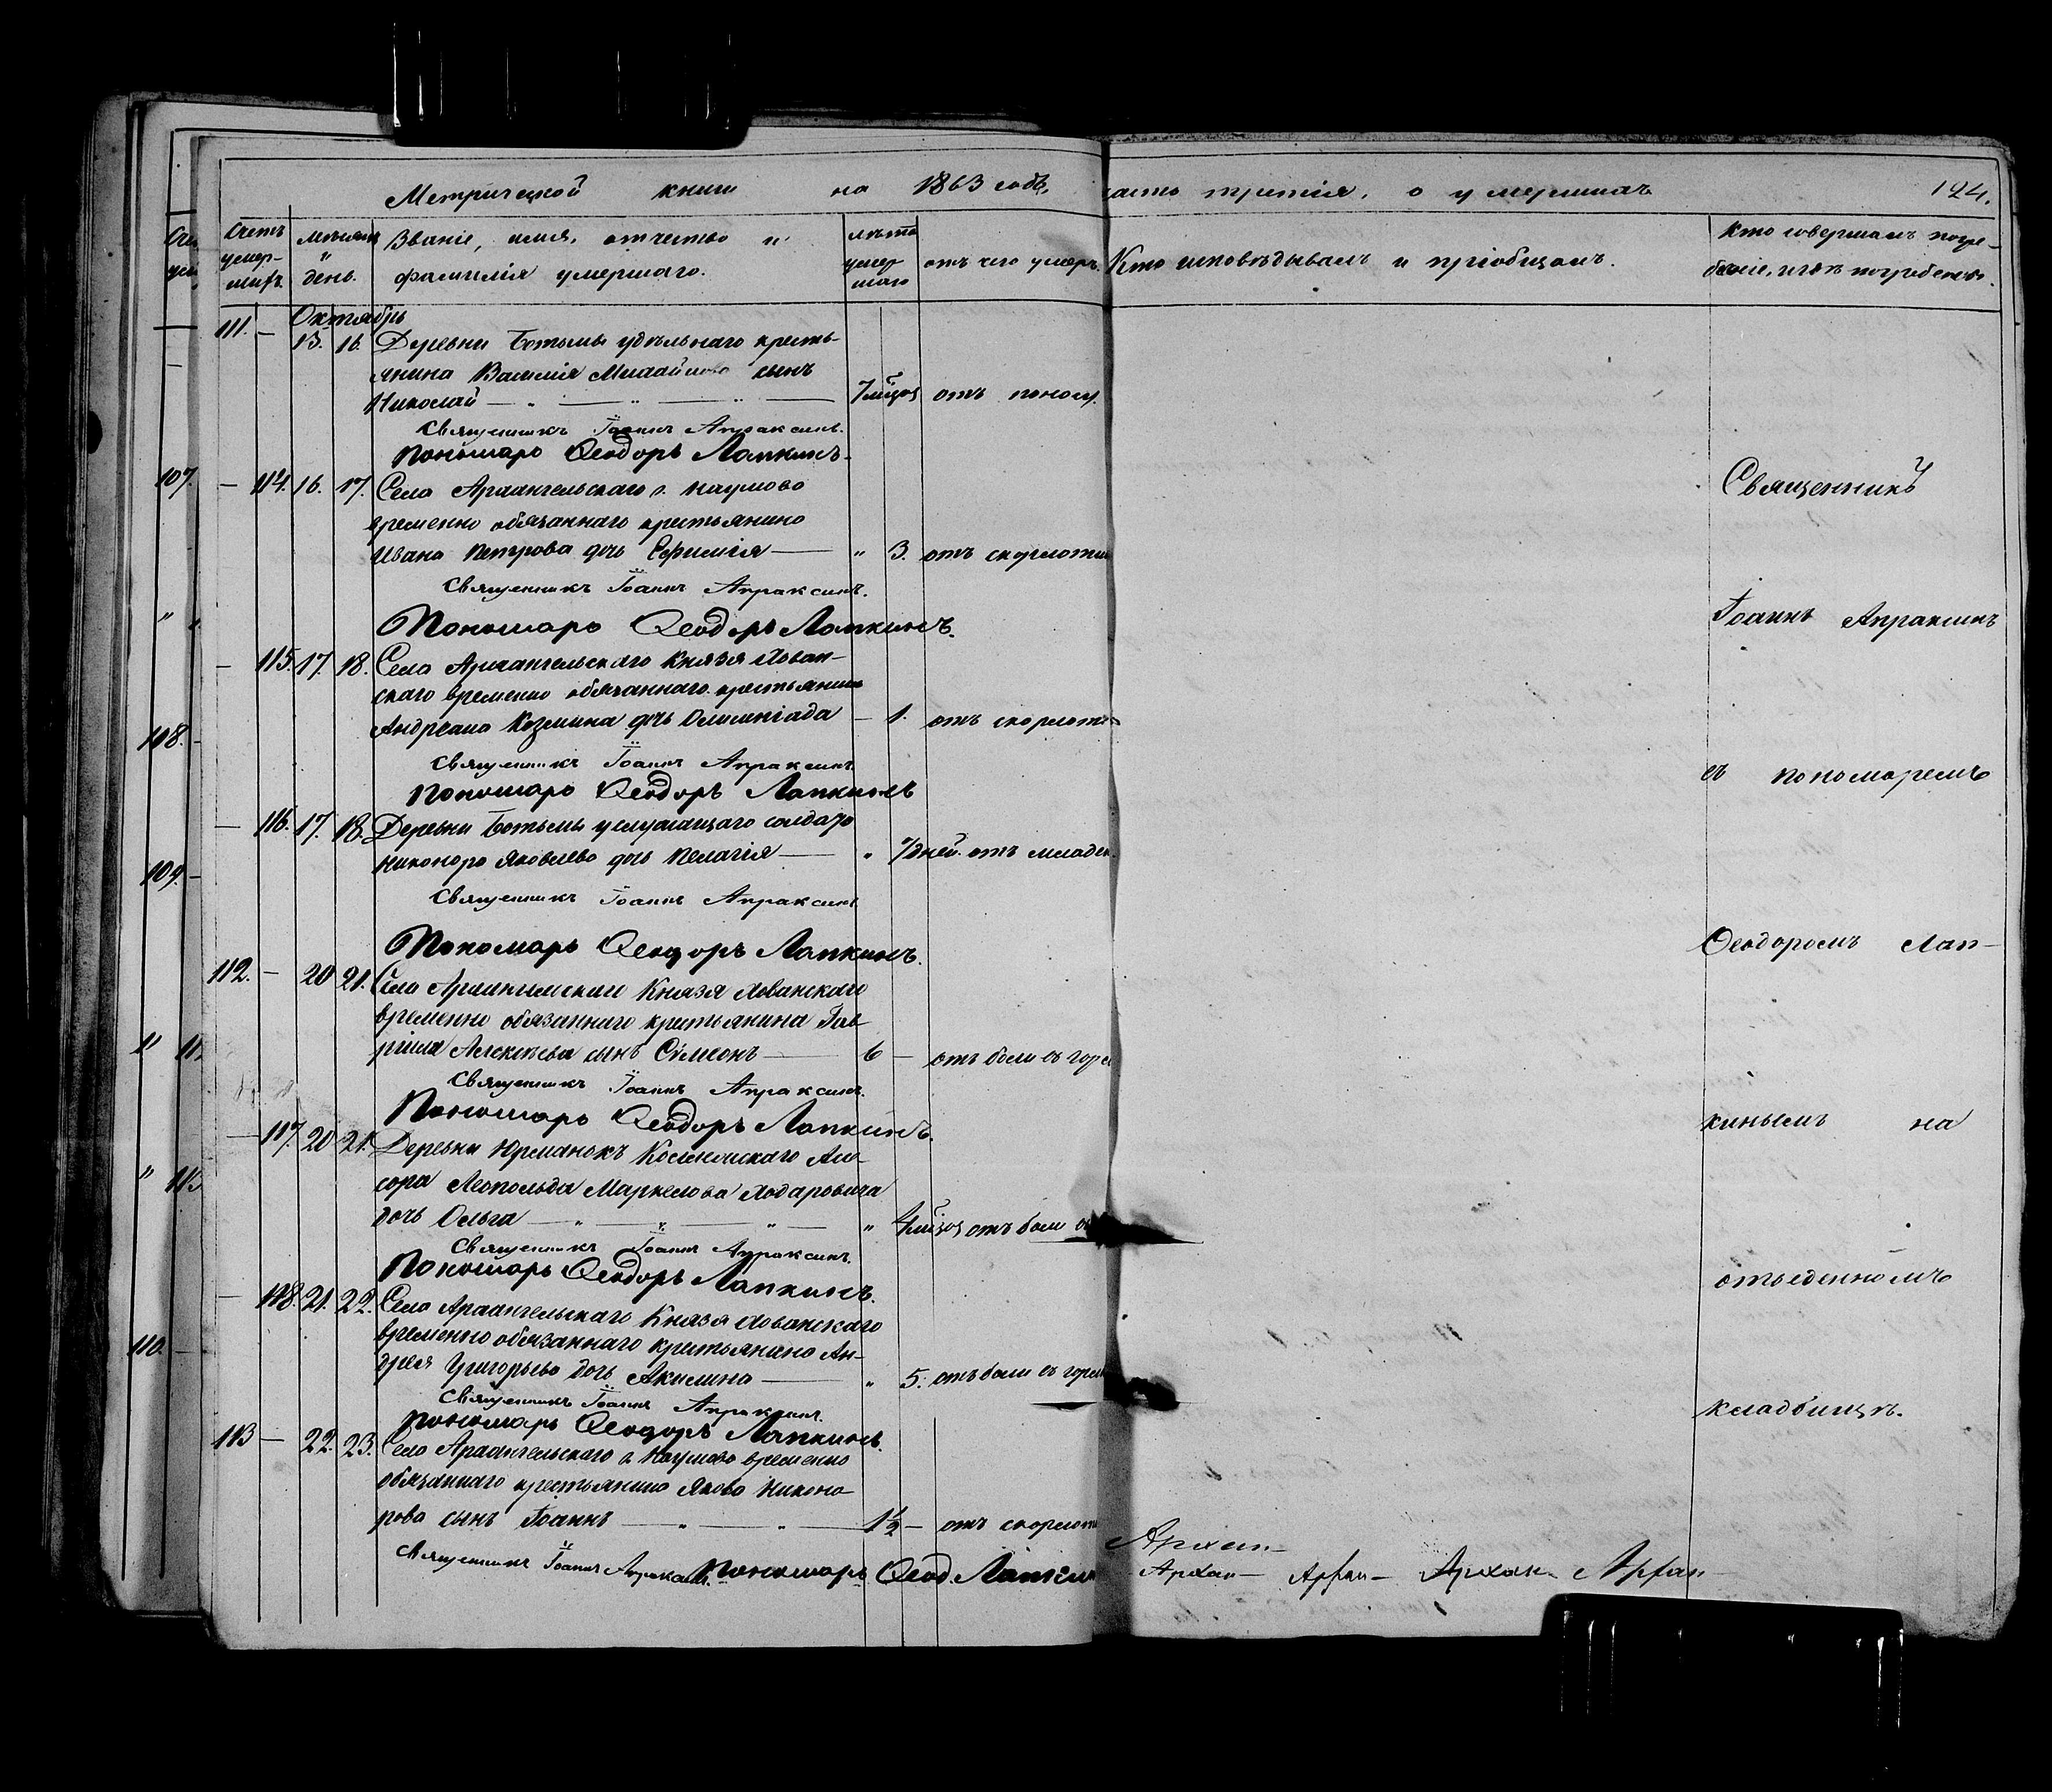 Метрической книги на 1863 годъ,
часть третія, о умершихъ
124.
Счетъ умер-шихъ
мѣсяцъ и день.
Званіе, имя, отчество и
фамилія умершаго.
лѣта умер шаго
отъ чего умеръ.
Кто исповѣдывалъ и пріобщалъ.
Кто совершалъ погре-
беніе, и гдѣ погребены.
Октябрь
111. — 13. 16. Деревни Ботьмы удѣльнаго кресть-
янина Василія Михайлова сынъ
Николай — 7 мѣсяц отъ поносу.
Священникъ Іоаннъ Апраксинъ.
Пономарь Ѳеодоръ Лапкинъ.
107.
— 114. 16. 17. Села Архангельскаго г. Наумова
временно обязаннаго крестьянина
Ивана Петрова дочь Ефимія — " 3. отъ скарлотин
Священникъ Іоаннъ Апраксинъ.
Пономарь Ѳеодоръ Лапкинъ.
— 115. 17. 18. Села Архангельскаго Князя Хован-
скаго временно обязаннаго крестьянина
Андреана Козмина дочь Олимпіада — 1. отъ скарлоти
108.
Священникъ Іоаннъ Апраксинъ.
Пономарь Ѳеодоръ Лапкинъ
— 116. 17. 18. Деревни Ботьмы услужащаго солдата
Никонора Яковлева дочь Пелагія — " 7 дней. отъ младен.
109.
Священникъ Іоаннъ Апраксинъ
Пономарь Ѳеодоръ Лапкинъ.
112. — 20 21. Села Архангельскаго Князя Хованскаго
временно обязаннаго крестьянина Гав-
ріила Алексѣева сынъ Сѵмеонъ — 6 — отъ боли въ горл
Священникъ Іоаннъ Апраксинъ.
Пономарь Ѳеодоръ Лапкинъ.
— 117. 20 21. Деревни Юрманокъ
Леопольда Маркелова
дочь Ольга — " 4 мѣсяц отъ боли
Священникъ Іоаннъ Апраксинъ.
Пономарь Ѳеодоръ Лапкинъ.
— 118. 21. 22. Села Архангельскаго Князя Хованскаго
временно обязаннаго крестьянина Ан-
дрея Григорьева дочь Акилина — " 5. отъ боли въ горл
110.
Священникъ Іоаннъ Апраксинъ.
Пономарь Ѳеодоръ Лапкинъ.
113 — 22. 23. Села Архангельскаго г. Наумова временно
обязаннаго крестьянина Якова Никоно-
рова сынъ Іоаннъ — 1½ — отъ скарлоти
Священникъ Іоаннъ Апраксинъ. Пономарь Ѳеод. Лапкин
Священникъ
Іоаннъ Апраксинъ
съ пономаремъ
Ѳеодоромъ Лап-
кинымъ на
отведенномъ
кладбищѣ.
Архан-
Архан- Архан- Архан- Архан-